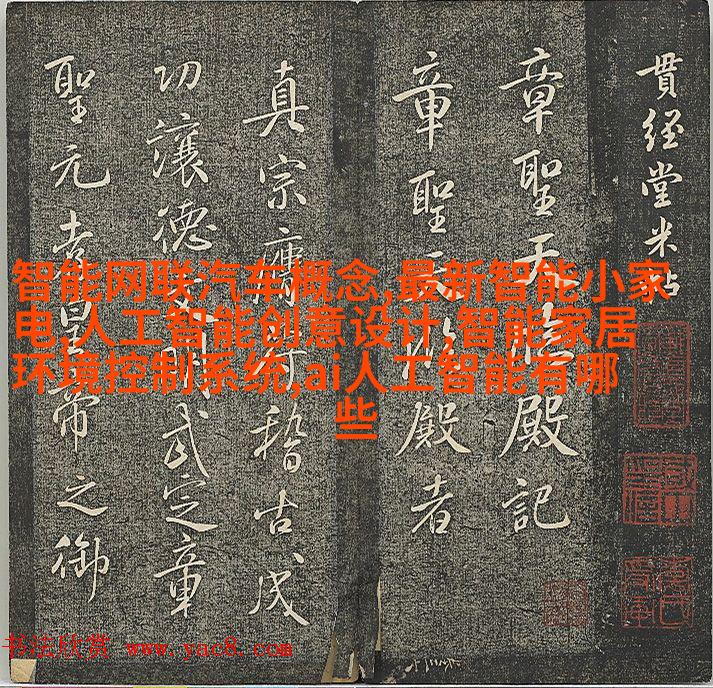 貫經堂米帖
章聖天臨殿記
章聖天臨殿者
真宗膺符稽古成
功讓德明武定章
聖元孝皇帝之御
智能网联汽车概念,最新智能小家
电,人工智能创意设计,智能家居
环境控制系统,ai人工智能有哪
些
书法欣赏 www.yac8.com